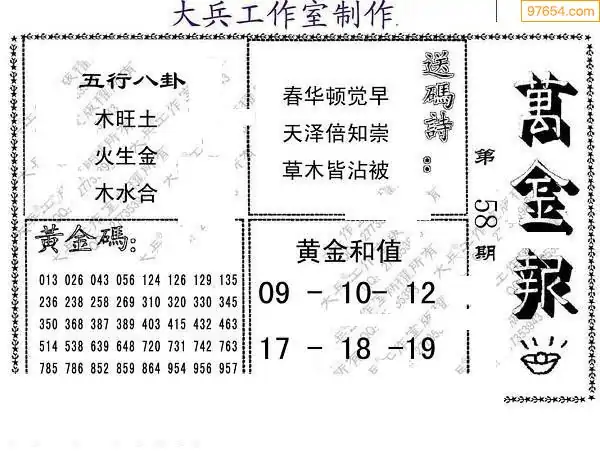 大兵工作室制作
97654.com
萬金報
第58期
送碼詩:
春华顿觉早
天泽倍知崇
草木皆沾被
五行八卦
木旺土
火生金
木水合
黄金和值
09 - 10- 12
17 - 18 -19
黃金碼:
013 026 043 056 124 126 129 135
236 238 258 269 310 320 330 345
350 368 387 389 403 415 432 463
514 538 639 648 720 731 742 763
785 786 852 859 864 954 956 957